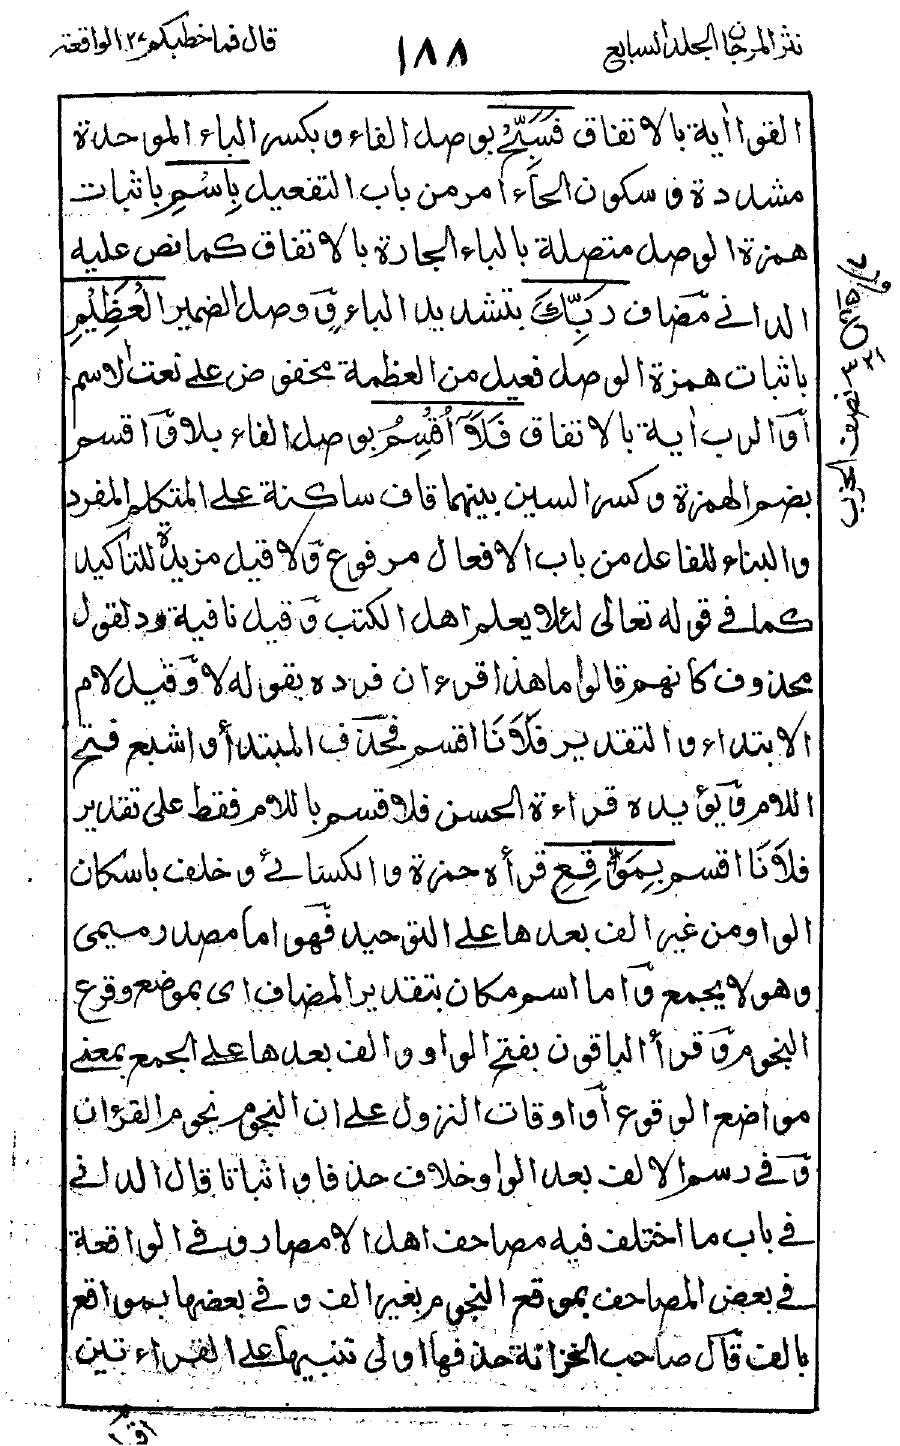 نثر المرجان الجلد السابع
١٨٨
قال فما خطبكم ٢٧ الواقعة
القوا أية بالاتفاق فَسَبِّحْ بوصل الفاء وبكسر الباء الموحدة
مشددة وسكون الحاء أمر من باب التفعيل بِاسْمِ باثبات
همزة الوصل متصلة بالباء الجارة بالاتفاق كما نص عليه
الداني مضاف رَبِّكَ بتشديد الباء ووصل الضمير الْعَظِيْمِ
باثبات همزة الوصل فعيل من العظمة مخفوض على نعت الاسم
أو الرب أية بالاتفاق فَلَآ أُقْسِمُ بوصل الفاء بلا واقسم
بضم الهمزة وكسر السين بينهما قاف ساكنة على المتكلم المفرد
والبناء للفاعل من باب الافعال مرفوع ولا قيل مزيدة للتاكيد
كما في قوله تعالى لئلا يعلم اهل الكتب وقيل نافية ورد لقول
محذوف كانهم قالوا ما هذا اقرءان فرده بقوله لا وقيل لام
الابتداء والتقدير فَلَأَنَا اقسم فحذف المبتدأ واشبع فتح
اللام ويؤيده قراءة الحسن فلاقسم باللام فقط على تقدير
فلأنا اقسم بِمَوٰقِعِ قرأه حمزة والكسائي وخلف باسكان
الواو من غير الف بعدها على التوحيد فهو اما مصدر ميمى
وهو لا يجمع واما اسم مكان بتقدير المضاف اى بموضع وقوع
النجوم وقرأ الباقون بفتح الواو والف بعدها على الجمع بمعنى
مواضع الوقوع أو اوقات النزول على ان النجوم نجوم القرءان
وفي رسم الالف بعد الواو خلاف حذفا واثباتا قال الداني
في باب ما اختلف فيه مصاحف اهل الامصار وفي الواقعة
في بعض المصاحف بموقع النجوم بغير الف وفي بعضها بمواقع
بالف قال صاحب الخزانة حذفها اولى تنبيها على القراءتين
نصف الحزب